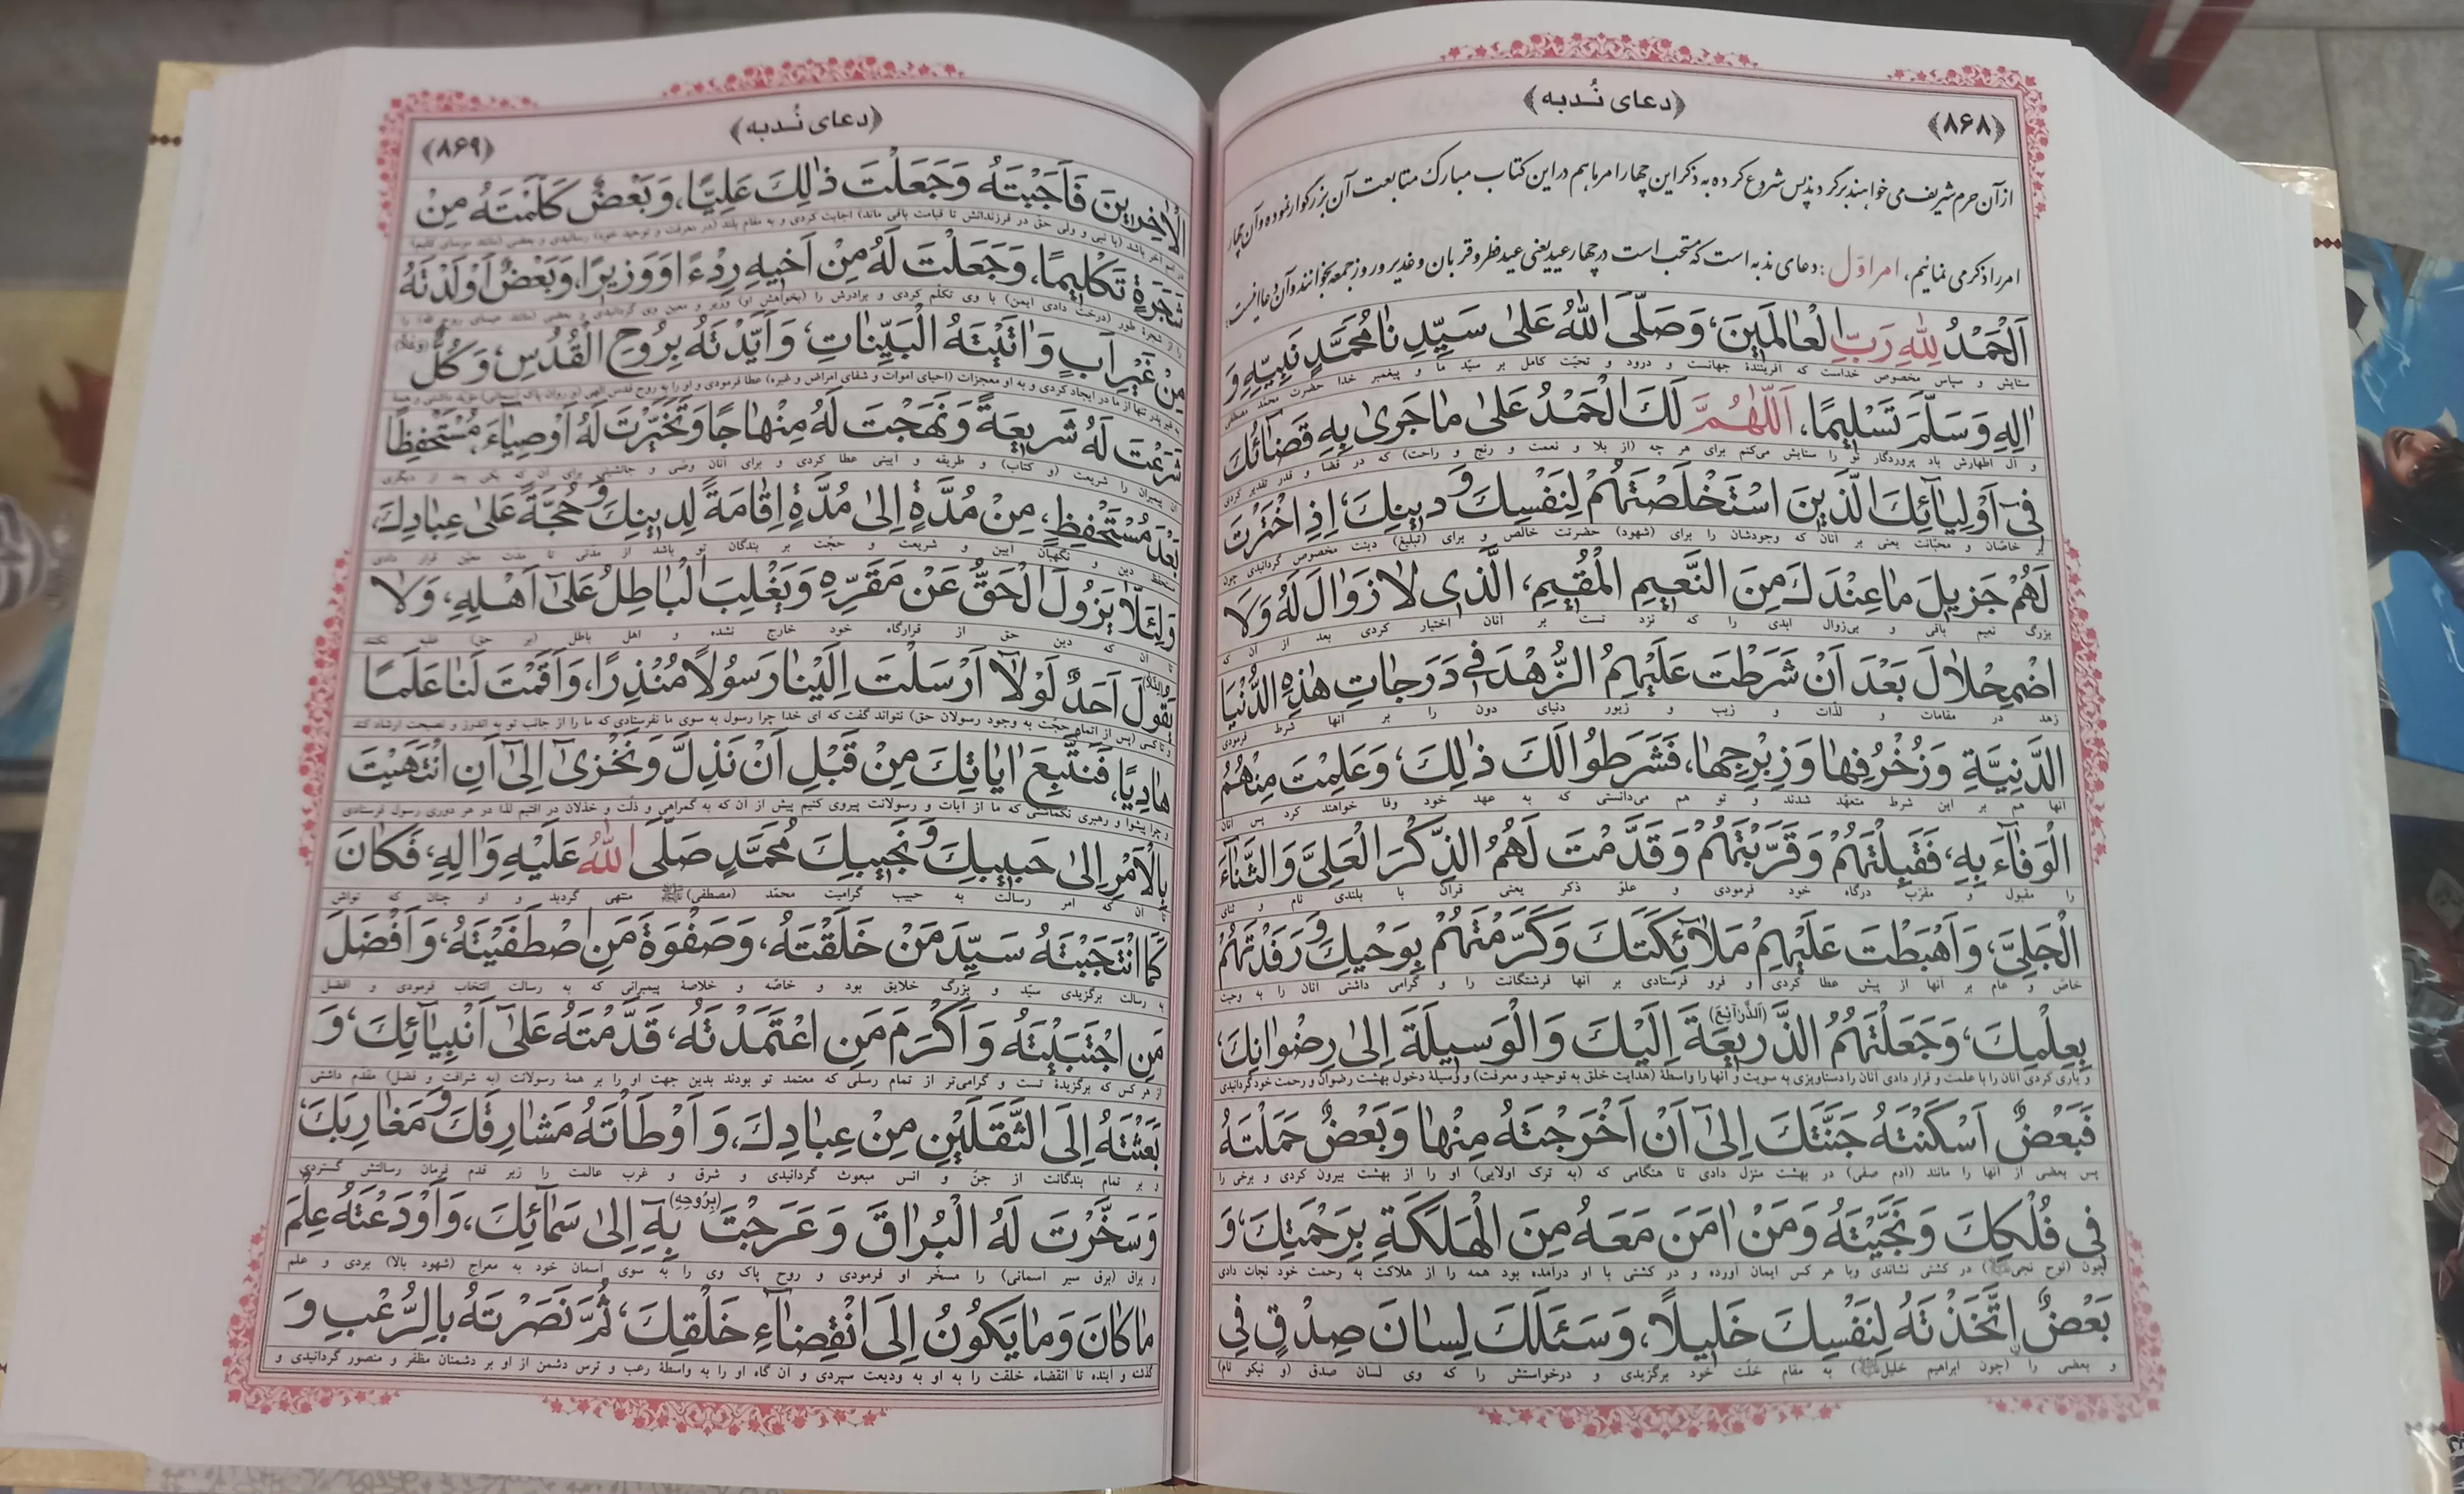 ﴿۸۶۸﴾
﴿دعای نُدبه﴾
ازآن حرم شریف می خواهند برگردند پس شروع کرده به ذکر این چهار امر ما هم در این کتاب مبارک متابعت آن بزرگوار نموده و آن چهار
امر را ذکر می نمائیم، امر اوّل: دعای ندبه است که مستحب است در چهار عید یعنی عید فطر و قربان و غدیر و روز جمعه بخوانند و آن دعا اینست:
اَلْحَمْدُ لِلّٰهِ رَبِّ الْعٰالَمِینَ، وَصَلَّی اللّٰهُ عَلیٰ سَیِّدِ نٰا مُحَمَّدٍ نَبِیِّهِ وَ
ستایش و سپاس مخصوص خداست که آفرینندهٔ جهانست و درود و تحیّت کامل بر سیّد ما و پیغمبر خدا حضرت محمّد مصطفی
اٰلِهِ وَسَلَّمَ تَسْلِیمًا، اَللّٰهُمَّ لَكَ الْحَمْدُ عَلیٰ مٰا جَریٰ بِهِ قَضٰائُكَ
و آل اطهارش باد پروردگار تو را ستایش می‌کنم برای هر چه (از بلا و نعمت و رنج و راحت) که در قضا و قدر تقدیر کردی
فِیٓ اَوْلِیٰٓائِكَ الَّذِینَ اسْتَخْلَصْتَهُمْ لِنَفْسِكَ وَ دِینِكَ، اِذِ اخْتَرْتَ
بر خاصّان و محبّانت یعنی بر آنان که وجودشان را برای (شهود) حضرتت خالص و برای (تبلیغ) دینت مخصوص گردانیدی چون
لَهُمْ جَزِیلَ مٰا عِنْدَكَ مِنَ النَّعِیمِ الْمُقِیمِ، الَّذِی لاٰ زَوٰالَ لَهُ وَلَا
بزرگ نعیم باقی و بی‌زوال ابدی را که نزد تست بر آنان اختیار کردی بعد از آن که
اضْمِحْلاٰلَ بَعْدَ اَنْ شَرَطْتَ عَلَیْهِمُ الزُّهْدَ فِی دَرَجٰاتِ هٰذِهِ الدُّنْیَا
زهد در مقامات و لذّات و زیب و زیور دنیای دون را بر آنها شرط فرمودی
الدَّنِیَّةِ وَزُخْرُفِهٰا وَزِبْرِجِهٰا، فَشَرَطُوا لَكَ ذٰلِكَ، وَعَلِمْتَ مِنْهُمُ
آنها هم بر این شرط متعهّد شدند و تو هم می‌دانستی که به عهد خود وفا خواهند کرد پس آنان
الْوَفٰآءَ بِهِ، فَقَبِلْتَهُمْ وَقَرَّبْتَهُمْ وَقَدَّمْتَ لَهُمُ الذِّكْرَ الْعَلِیَّ وَالثَّنٰآءَ
را مقبول و مقرّب درگاه خود فرمودی و علوّ ذکر یعنی قرآن با بلندی نام و ثنای
الْجَلِیَّ، وَاَهْبَطْتَ عَلَیْهِمْ مَلآٰئِكَتَكَ وَكَرَّمْتَهُمْ بِوَحْیِكَ وَ رَفَدْتَهُمْ
خاصّ و عام بر آنها از پیش عطا کردی و فرو فرستادی بر آنها فرشتگانت را و گرامی داشتی آنان را به وحیت
بِعِلْمِكَ، وَجَعَلْتَهُمُ الذَّرِیعَةَ (اَلذَّرٰایِعَ) اِلَیْكَ وَالْوَسِیلَةَ اِلیٰ رِضْوٰانِكَ،
و یاری کردی آنان را با علمت و قرار دادی آنان را دستاویزی به سویت و آنها را واسطهٔ (هدایت خلق به توحید و معرفت) و وسیلهٔ دخول بهشت رضوان و رحمت خود گردانیدی
فَبَعْضٌ اَسْكَنْتَهُ جَنَّتَكَ اِلیٰٓ اَنْ اَخْرَجْتَهُ مِنْهٰا وَبَعْضٌ حَمَلْتَهُ
پس بعضی از آنها را مانند (آدم صفی) در بهشت منزل دادی تا هنگامی که (به ترک اولایی) او را از بهشت بیرون کردی و برخی را
فِی فُلْكِكَ وَنَجَّیْتَهُ وَمَنْ اٰمَنَ مَعَهُ مِنَ الْهَلَكَةِ بِرَحْمَتِكَ، وَ
چون (نوح نجی) در کشتی نشاندی وبا هر کس ایمان آورده و در کشتی با او درآمده بود همه را از هلاکت به رحمت خود نجات دادی
بَعْضٌ اِتَّخَذْتَهُ لِنَفْسِكَ خَلِیلًا، وَسَئَلَكَ لِسٰانَ صِدْقٍ فِی
و بعضی را (چون ابراهیم خلیل) به مقام خلّت خود برگزیدی و درخواستش را که وی لسان صدق (و نیکو نام)
﴿دعای نُدبه﴾
﴿۸۶۹﴾
الْاٰخِرِینَ فَاَجَبْتَهُ وَجَعَلْتَ ذٰلِكَ عَلِیًّا، وَبَعْضٌ كَلَّمْتَهُ مِنْ
در امم آخر باشد (یا نبی و ولی حق در فرزندانش تا قیامت باقی ماند) اجابت کردی و به مقام بلند (در معرفت و توحید خود) رسانیدی و بعضی (مانند موسای کلیم)
شَجَرَةٍ تَكْلِیمًا، وَجَعَلْتَ لَهُ مِنْ اَخِیهِ رِدْءًا وَوَزِیرًا، وَبَعْضٌ اَوْلَدْتَهُ
را از شجرهٔ طور (درخت وادی ایمن) با وی تکلّم کردی و برادرش را (بخواهش او) وزیر و معین وی گردانیدی و بعضی (مانند عیسای روح الله) را
مِنْ غَیْرِ اَبٍ وَ اٰتَیْتَهُ الْبَیِّنٰاتِ، وَ اَیَّدْتَهُ بِرُوحِ الْقُدُسِ، وَ كُلٌّ (وَكُلاًّ)
به غیر پدر تنها از مادر ایجاد کردی و به او معجزات (احیای اموات و شفای امراض و غیره) عطا فرمودی و او را به روح قدس الهی (و روان پاک آسمانی) مؤید داشتی و همهٔ
شَرَعْتَ لَهُ شَرِیعَةً وَ نَهَجْتَ لَهُ مِنْهٰاجًا وَتَخَیَّرْتَ لَهُ اَوْصِیٰآءَ، مُسْتَحْفِظًا
آن پیمبران را شریعت (و کتاب) و طریقه و آیینی عطا کردی و برای آنان وصّی و جانشینی برای آن که یکی بعد از دیگری
بَعْدَ مُسْتَحْفِظٍ، مِنْ مُدَّةٍ اِلیٰ مُدَّةٍ اِقٰامَةً لِدِینِكَ وَ حُجَّةً عَلیٰ عِبٰادِكَ،
مستحفظ دین و نگهبان آیین و شریعت و حجّت بر بندگان تو باشد از مدّتی تا مدت معیّن قرار دادی
وَلِئَلّٰا یَزُولَ الْحَقُّ عَنْ مَقَرِّهِ وَیَغْلِبَ الْبٰاطِلُ عَلیٰٓ اَهْلِهِ، وَلاٰ
تا آن که دین حق از قرارگاه خود خارج نشده و اهل باطل (بر حق) غلبه نکنند
یَقُولَ اَحَدٌ لَوْ لآٰ اَرْسَلْتَ اِلَیْنٰا رَسُولًا مُنْذِرًا، وَ اَقَمْتَ لَنٰا عَلَمًا
و تا کسی (پس از اتمام حجّت به وجود رسولان حق) نتواند گفت که ای خدا چرا رسول به سوی ما نفرستادی که ما را از جانب تو به اندرز و نصیحت ارشاد کند
هٰادِیًا، فَنَتَّبِعَ اٰیٰاتِكَ مِنْ قَبْلِ اَنْ نَذِلَّ وَ نَخْزیٰٓ اِلیٰٓ اَنِ انْتَهَیْتَ
و چرا پیشوا و رهبری نگماشتی که ما از آیات و رسولانت پیروی کنیم پیش از آن که به گمراهی و ذلّت و خذلان در افتیم لذا در هر دوری رسول فرستادی
بِالْاَمْرِ اِلیٰ حَبِیبِكَ وَ نَجِیبِكَ مُحَمَّدٍ صَلَّی اللّٰهُ عَلَیْهِ وَاٰلِهِ، فَكٰانَ
تا آن که امر رسالت به حبیب گرامیت محمّد (مصطفی)ﷺ منتهی گردید و او چنان که تواش
كَمَا انْتَجَبْتَهُ سَیِّدَ مَنْ خَلَقْتَهُ، وَصَفْوَةَ مَنِ اصْطَفَیْتَهُ، وَ اَفْضَلَ
به رسالت برگزیدی سیّد و بزرگ خلایق بود و خاصّه و خلاصهٔ پیمبرانی که به رسالت انتخاب فرمودی و افضل
مَنِ اجْتَبَیْتَهُ وَ اَكْرَمَ مَنِ اعْتَمَدْتَهُ، قَدَّمْتَهُ عَلیٰٓ اَنْبِیٰآئِكَ، وَ
از هر کس که برگزیدهٔ تست و گرامی‌تر از تمام رسلی که معتمد تو بودند بدین جهت او را بر همهٔ رسولانت (به شرافت و فضل) مقدّم داشتی
بَعَثْتَهُ اِلَی الثَّقَلَیْنِ مِنْ عِبٰادِكَ، وَ اَوْطَاْتَهُ مَشٰارِقَكَ وَ مَغٰارِبَكَ،
و بر تمام بندگانت از جنّ و انس مبعوث گردانیدی و شرق و غرب عالمت را زیر قدم فرمان رسالتش گستردی
وَسَخَّرْتَ لَهُ الْبُرٰاقَ وَ عَرَجْتَ بِهِٓ (بِرُوحِهِ) اِلیٰ سَمٰآئِكَ، وَ اَوْدَعْتَهُ عِلْمَ
و براق (برق سیر آسمانی) را مسخّر او فرمودی و روح پاک وی را به سوی آسمان خود به معراج (شهود بالا) بردی و علم
مٰا كٰانَ وَ مٰا یَكُونُ اِلَی انْقِضٰآءِ خَلْقِكَ، ثُمَّ نَصَرْتَهُ بِالرُّعْبِ وَ
گذشته و آینده تا انقضاء خلقت را به او به ودیعت سپردی و آن گاه او را به واسطهٔ رعب و ترس دشمن از او بر دشمنان مظفّر و منصور گردانیدی و